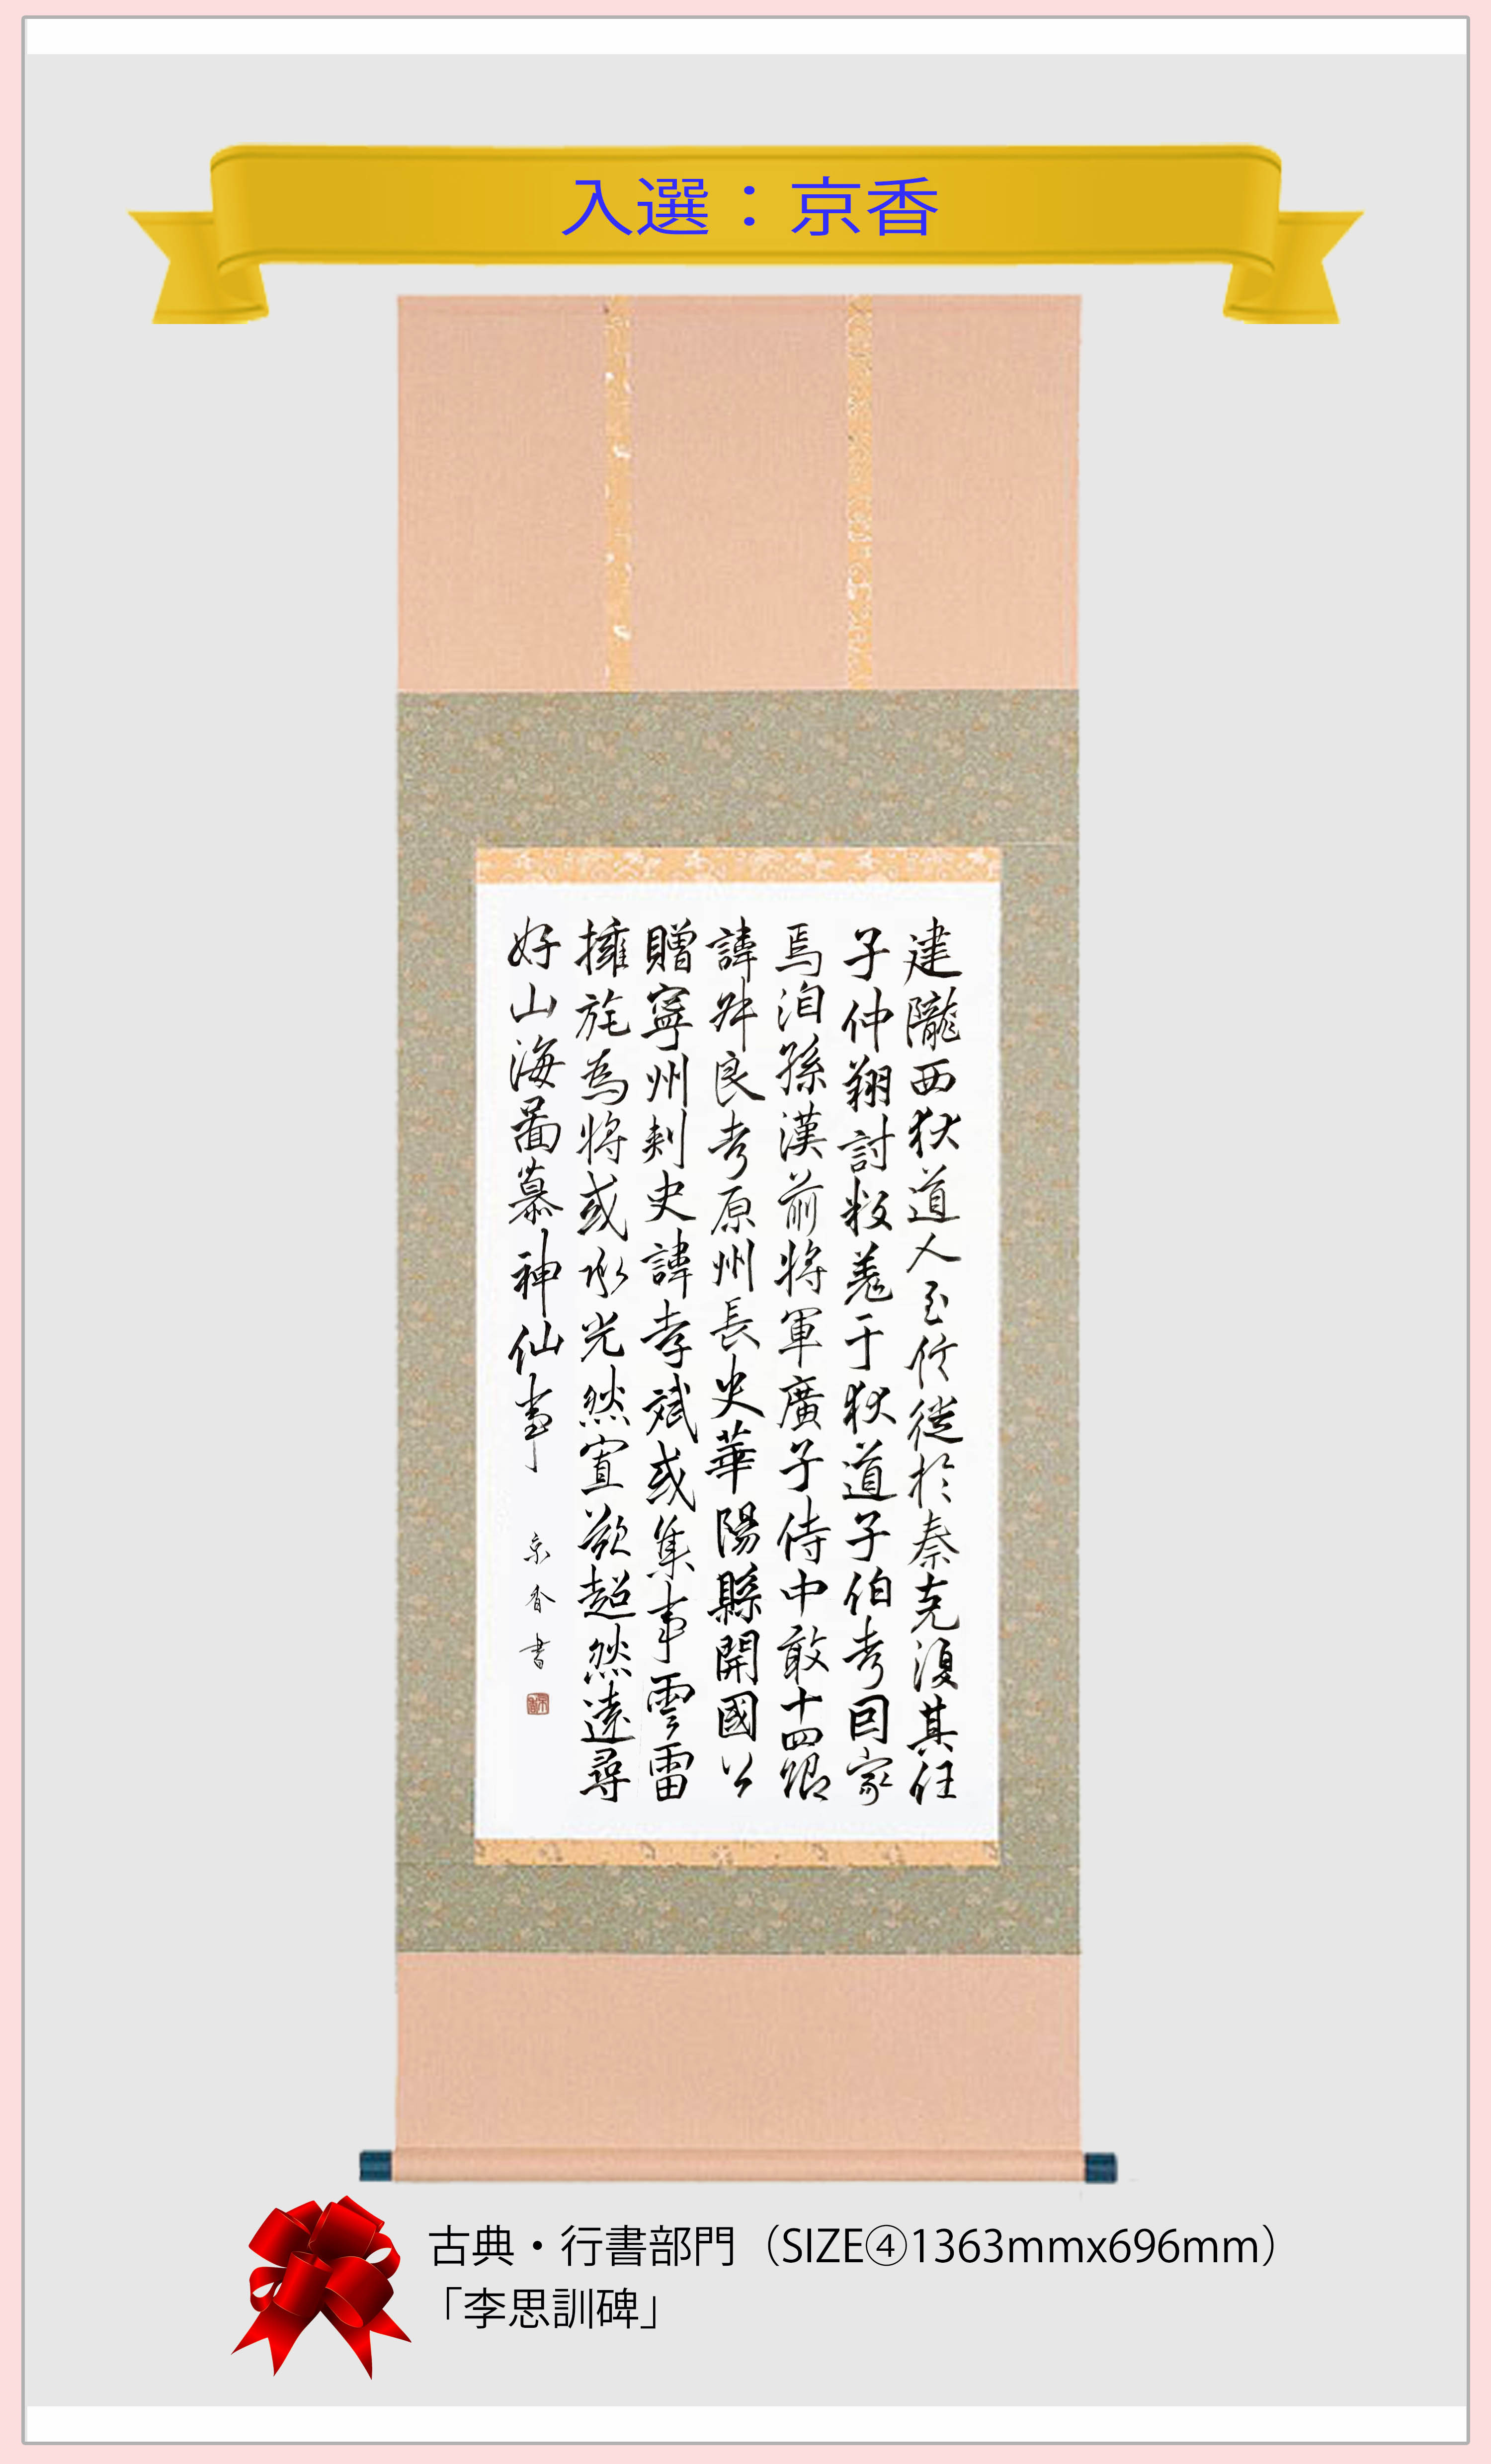 入選：京香
建隴西狄道人至信徙於秦克復其任
子仲翔討叛羌于狄道子伯考因家
焉洎孫漢前將軍廣子侍中敢十四
諱昇良考原州長史華陽縣開國公
贈寧州刺史諱孝斌或集事雲雷
擁旄為將或承光然宣欲超然遠尋
好山海圖慕神仙事
京香書
古典・行書部門（SIZE④1363mmx696mm）
「李思訓碑」